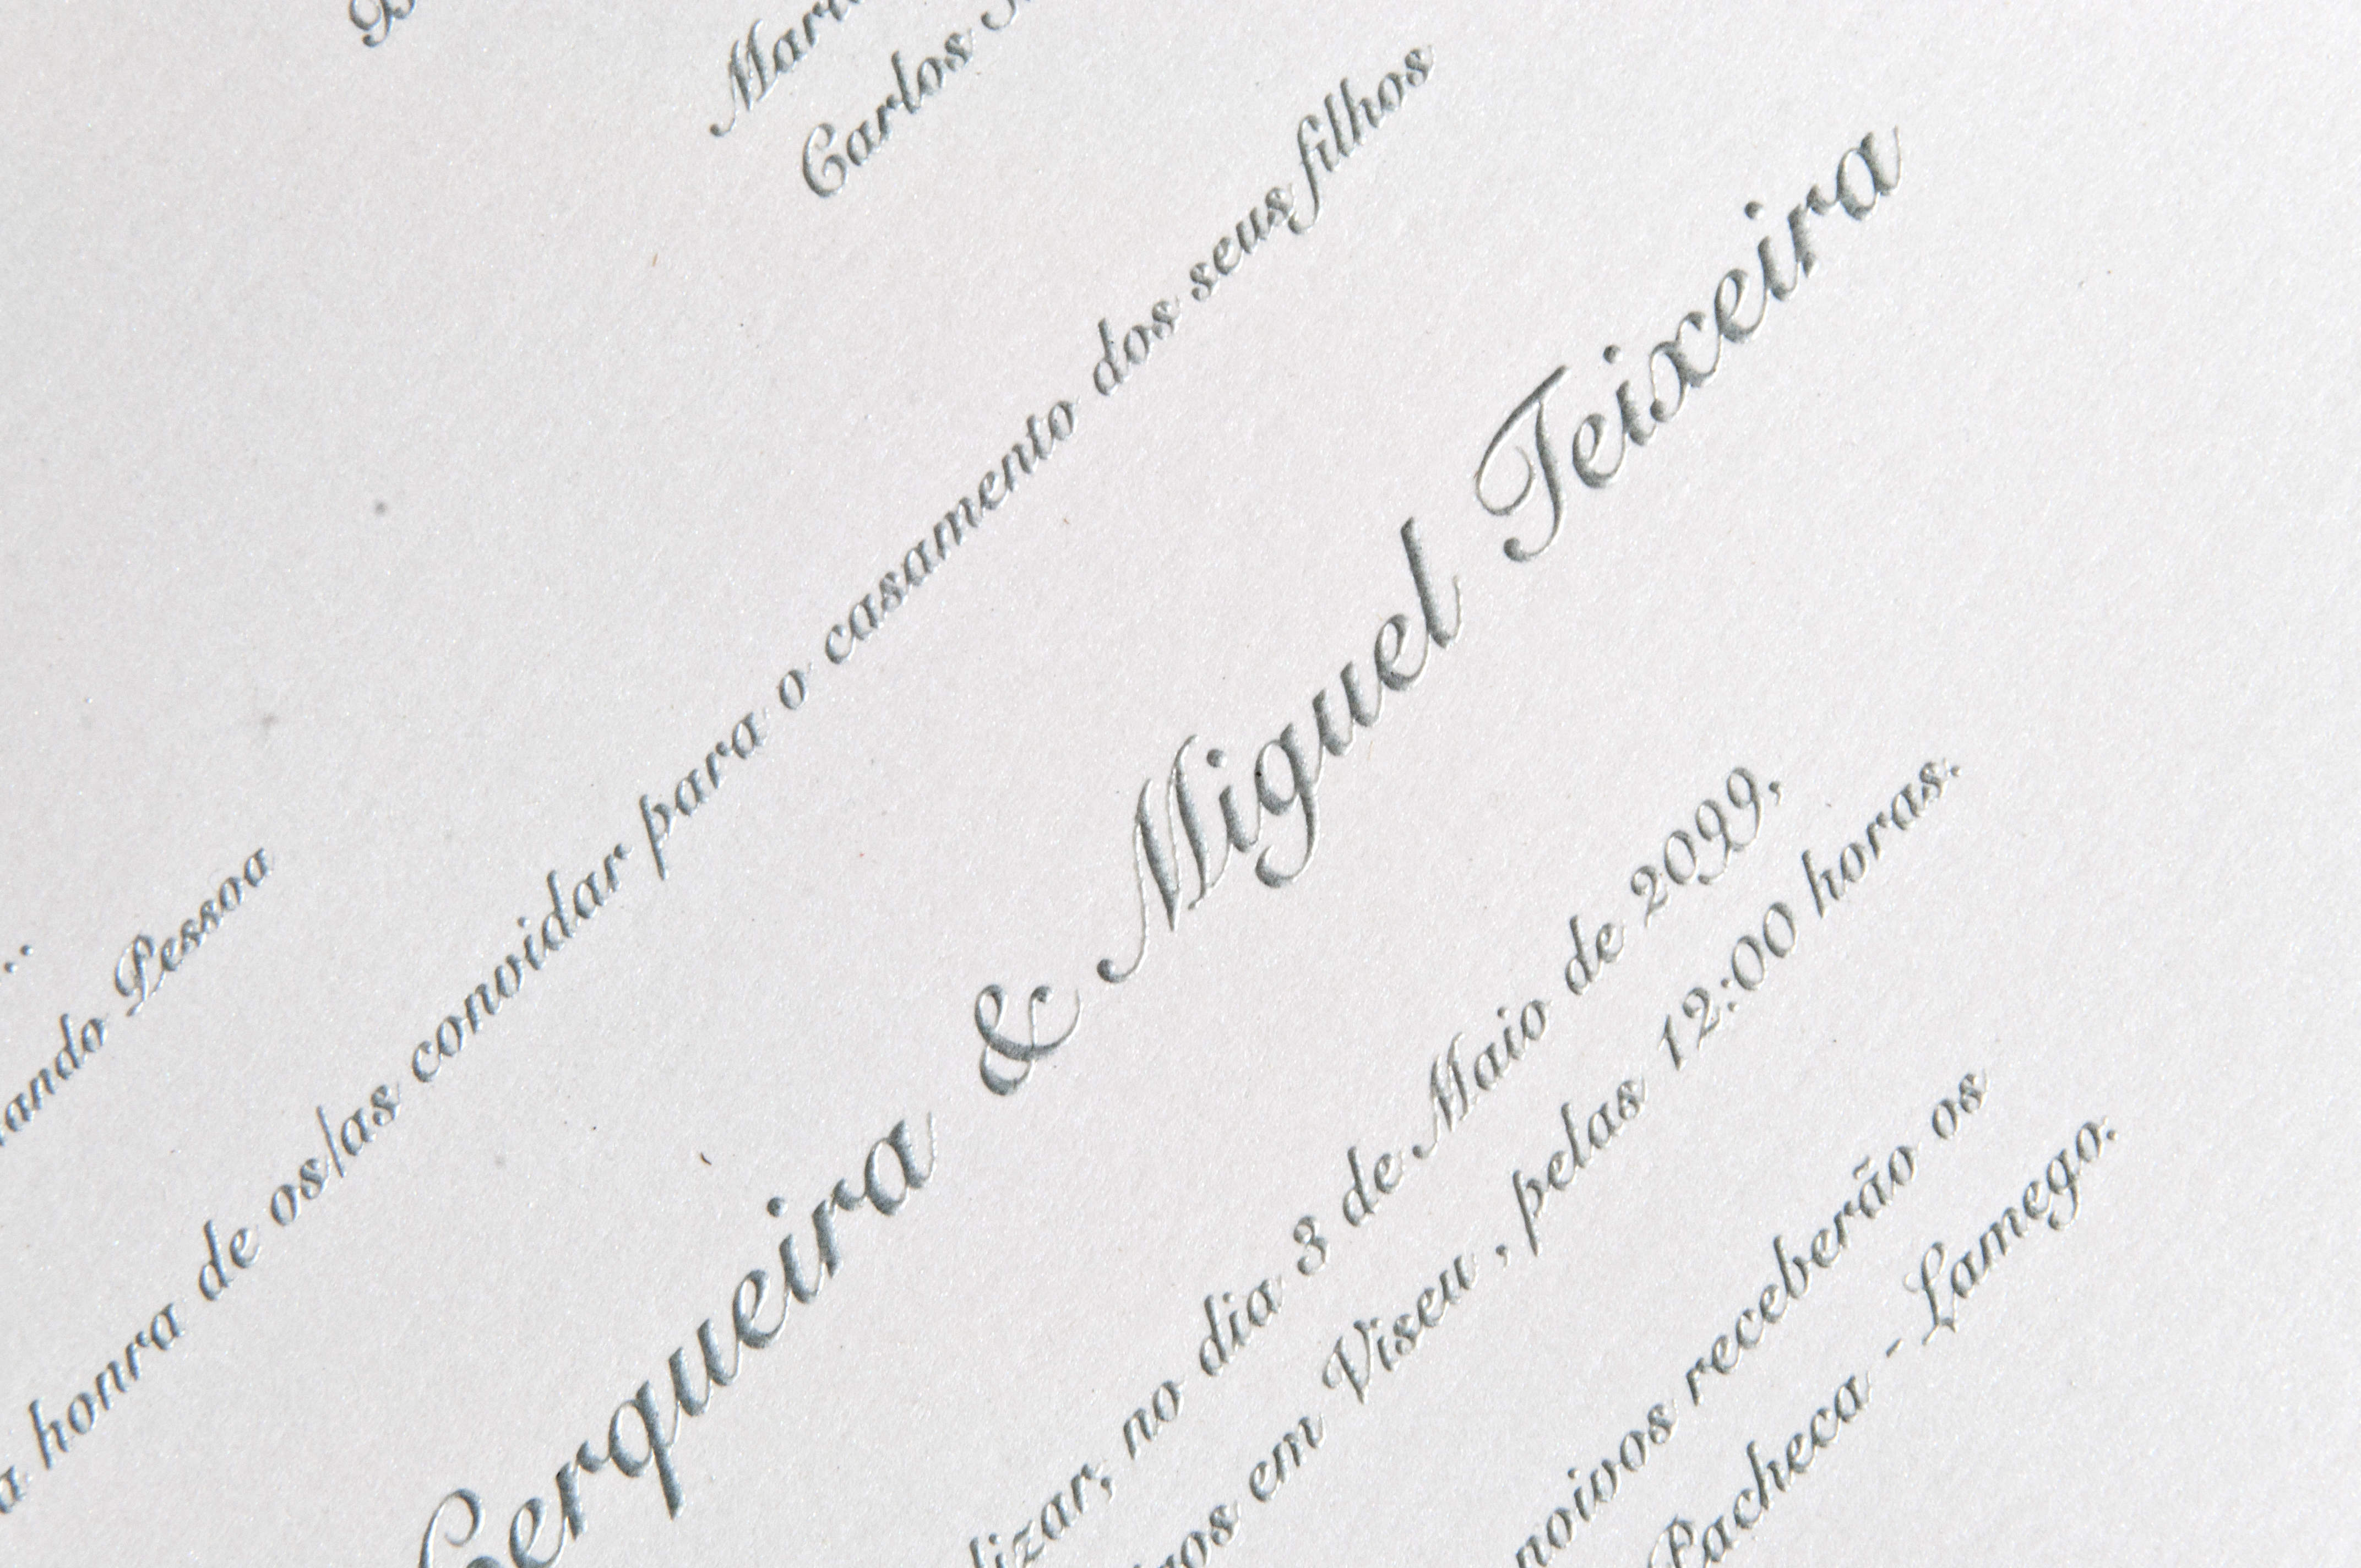 Pessoa
Carlos
honra de os/as convidar para o casamento dos seus filhos
Cerqueira & Miguel Teixeira
no dia 3 de Maio de 2099,
em Viseu , pelas 12:00 horas.
noivos receberão os
Pacheca - Lamego.